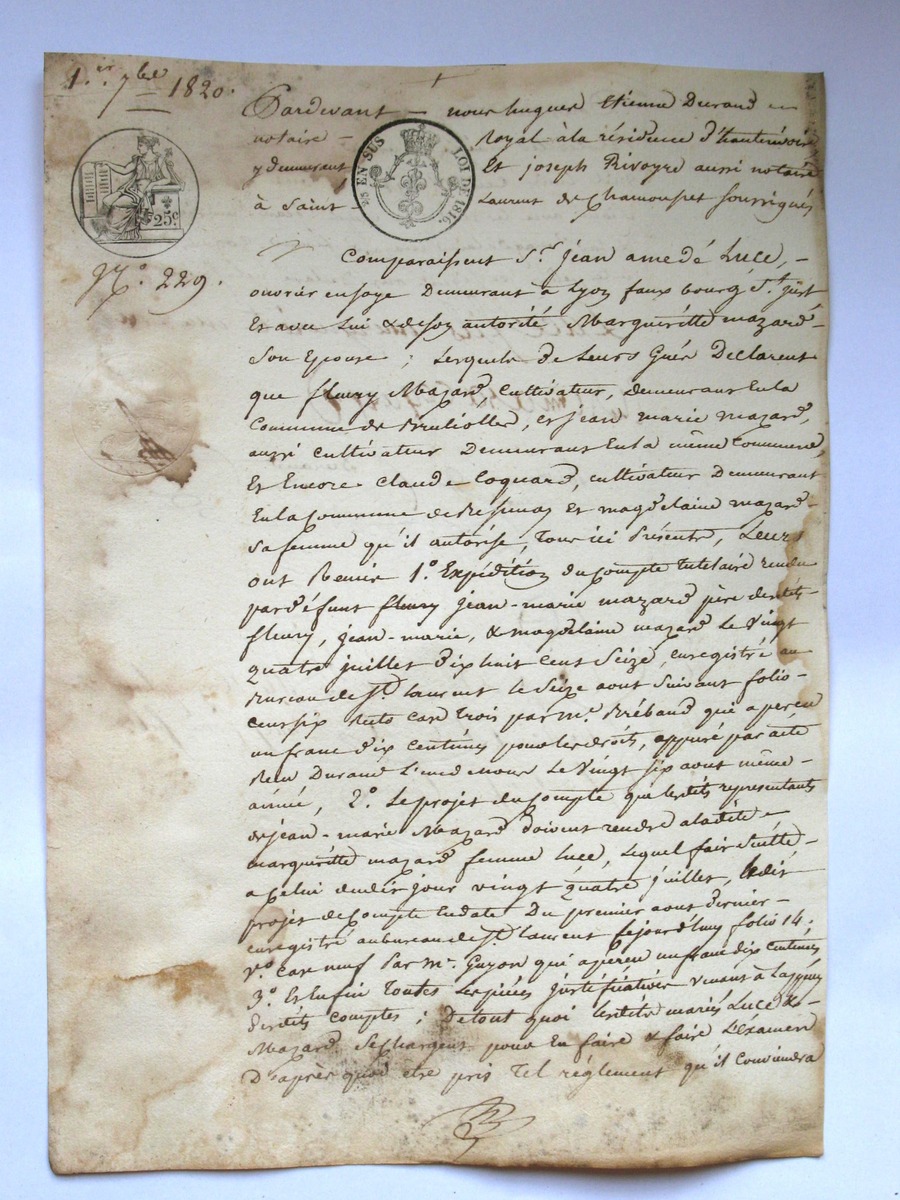 1.er 7bre 1820.
Pardevant nous hugues Etienne Durand
notaire Royal à la résidence d'hauterivoire
y demeurant Et joseph Rivoyre aussi notaire
à Saint Laurent de Chamousset soussignés
25 EN SUS LOI DE 1816.
25c.
No. 229.
Comparaissent Sr. jean amedé Luce,
ouvrier en soye Demeurant à Lyon faux bourg St. just
Et avec lui & de son autorité Margueritte mazard
son Epouse ; lesquels de leurs Grés Declarent
que fleury Mazard, Cultivateur, demeurant En la
Commune de Brulliolles, et jean marie mazard,
aussi cultivateur Demeurant En la même Commune,
Et Encore Claude Coquard, cultivateur Demeurant
En la Commune de Bessenay Et magdelaine mazard
sa femme qu'il autorise, tous ici Présents, Leurs
ont Remis 1.o Expédition du Compte tutelaire rendu
par défunt fleury jean-marie mazard père desdits
fleury, jean-marie, & magdelaine mazard le vingt
quatre juillet dix huit cent seize, enregistré au
Bureau de St. laurent le seize aout suivant folio
cent six Recto case trois par Mr. Rébaud qui a perçu
un franc dix centimes pour les droits, appuré par acte
Reçu Durand L'un de Nous Le Vingt six aout même
année, 2.o Le projet du Compte que lesdits representants
de jean-marie Mazard doivent rendre a ladite
margueritte mazard femme Luce, lequel fait suitte
a Celui dudit jour vingt quatre juillet, ledit
projet de Compte En date Du premier aout dernier
enregistré au bureau de St. laurent Cejourd'huy folio 14;
vo. case neuf Par Mr. Guyon qui a perçu un franc dix centimes
3.o Et Enfin toutes les pièces justifiatives venant à L'appuy
desdits comptes ; De tout quoi lesdits mariés Luce &
Mazard se chargent pour En faire & faire L'Examen
D'après quoi etre pris Tel réglement qu'il Conviendra